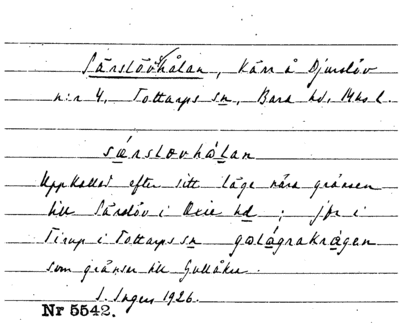 Särslövhålan, Kärr å Djurslöv
n:r 4, Tottarps sn, Bara hd, Mlhs l.
särslovhålan
Uppkallad efter sitt läge nära gränsen
till Särslöv i Oxie hd; jfr i
Tirup i Tottarps sn golågrakrågen
som gränser till Gullåkra.
I. Ingers 1926.
Nr 5542.